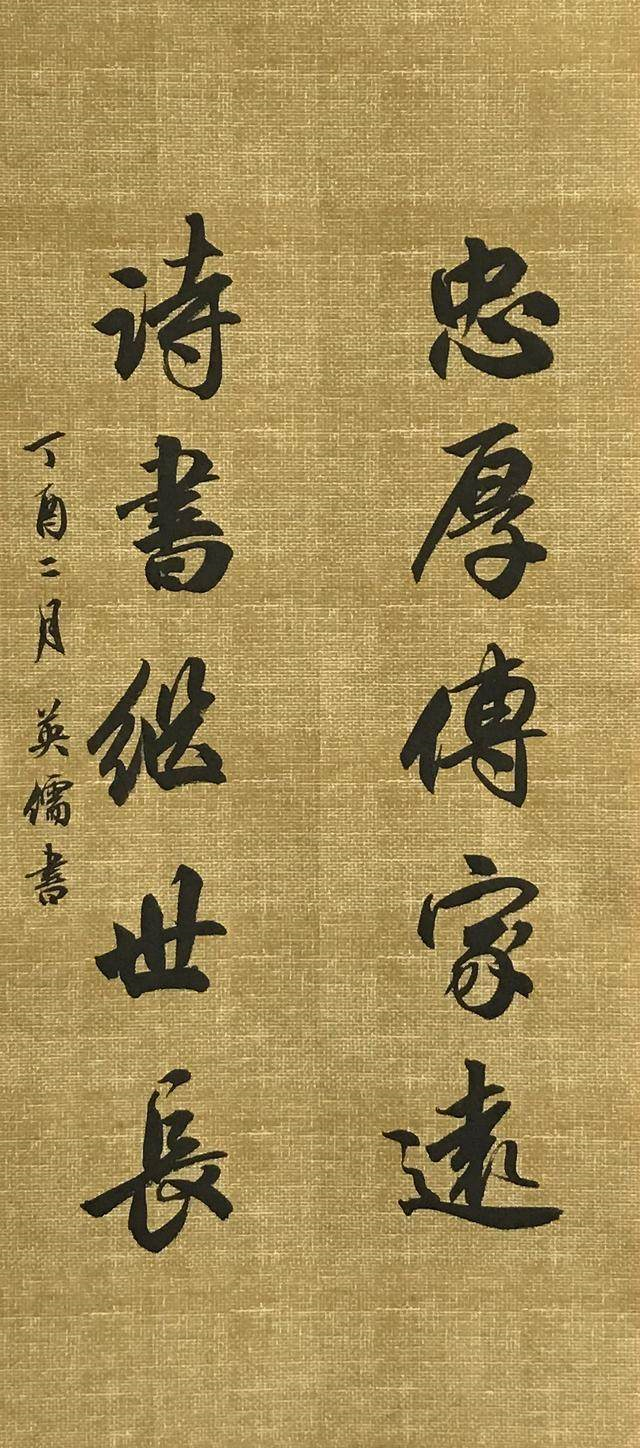 忠厚傳家遠
詩書继世長
丁酉二月 英儒書